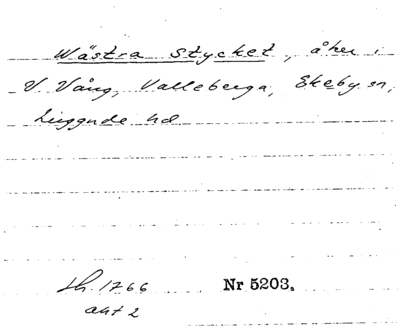 Wästra stycket, åker i
V Vång, Valleberga, Ekeby sn,
Luggude hd
Lh. 1766
akt 2
Nr 5203.